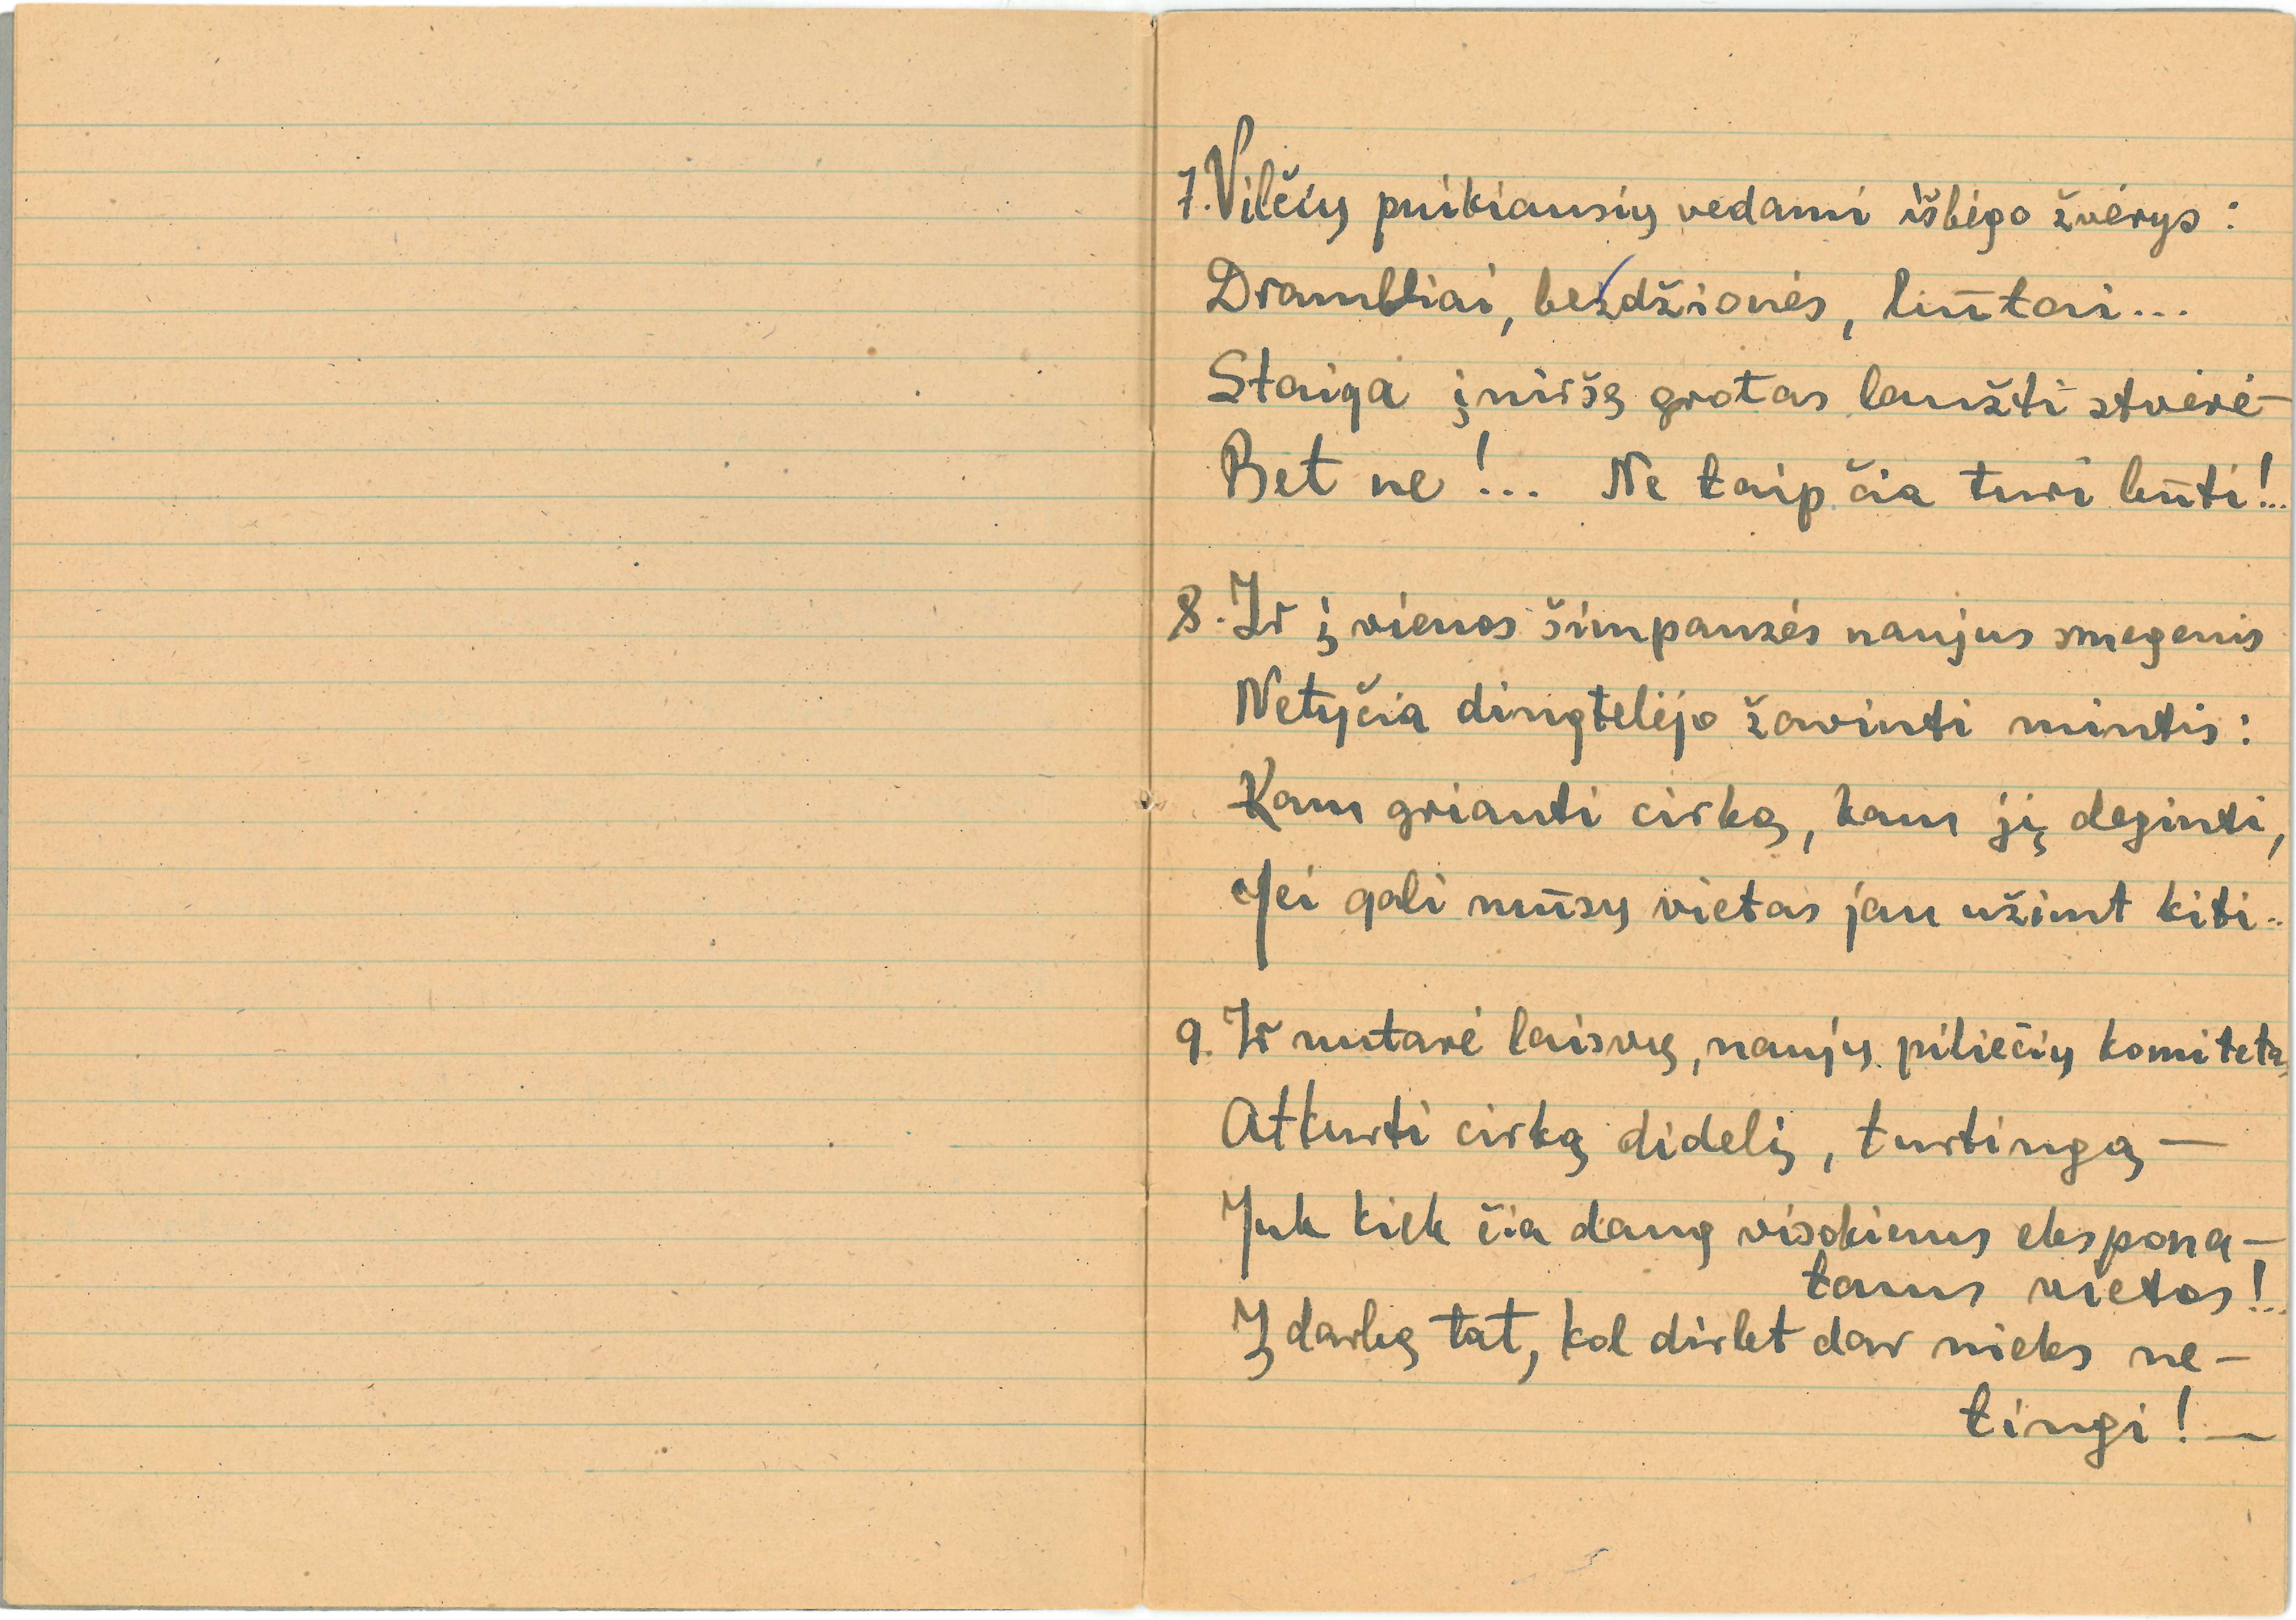 7. Vilčių puikiausių vedami išbėgo žvėrys:
Drambliai, beždžionės, liūtai...
Staiga įniršę grotas laužti stvėrė—
Bet ne!... Ne taip čia turi būti!...
8. Ir į vienos šimpanzės naujus smegenis
Netyčia dingtelėjo žavinti mintis:
Kam griauti cirką, kam jį deginti,
Jei gali mūsų vietas jau užimt kiti..
9. Ir nutarė laisvų, naujų piliečių komitetas
Atkurti cirką didelį, turtingą —
Juk kiek čia daug visokiems ekspona-
tams vietos!..
Į darbą tat, kol dirbt dar nieks ne-
tingi! —